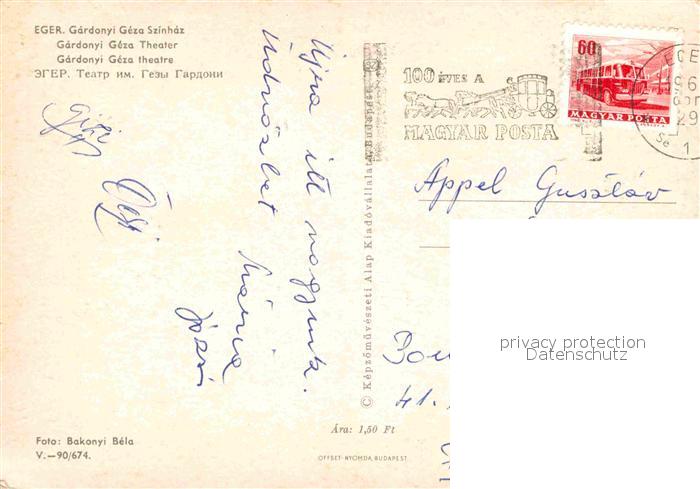 EGER. Gárdonyi Géza Színház
Gárdonyi Géza Theater
Gárdonyi Géza theatre
ЭГЕР. Театр им. Гезы Гардони
Újra itt vagyunk.
Üdvözlet
Mária
Józsi
Gizi
Foto: Bakonyi Béla
V.—90/674.
© Képzőművészeti Alap Kiadóvállalata, Budapest
Ára: 1,50 Ft
OFFSET-NYOMDA, BUDAPEST
100 ÉVES A
MAGYAR POSTA
60
MAGYAR POSTA
EGE
29
1
Appel Gusztáv
41.
privacy protection
Datenschutz